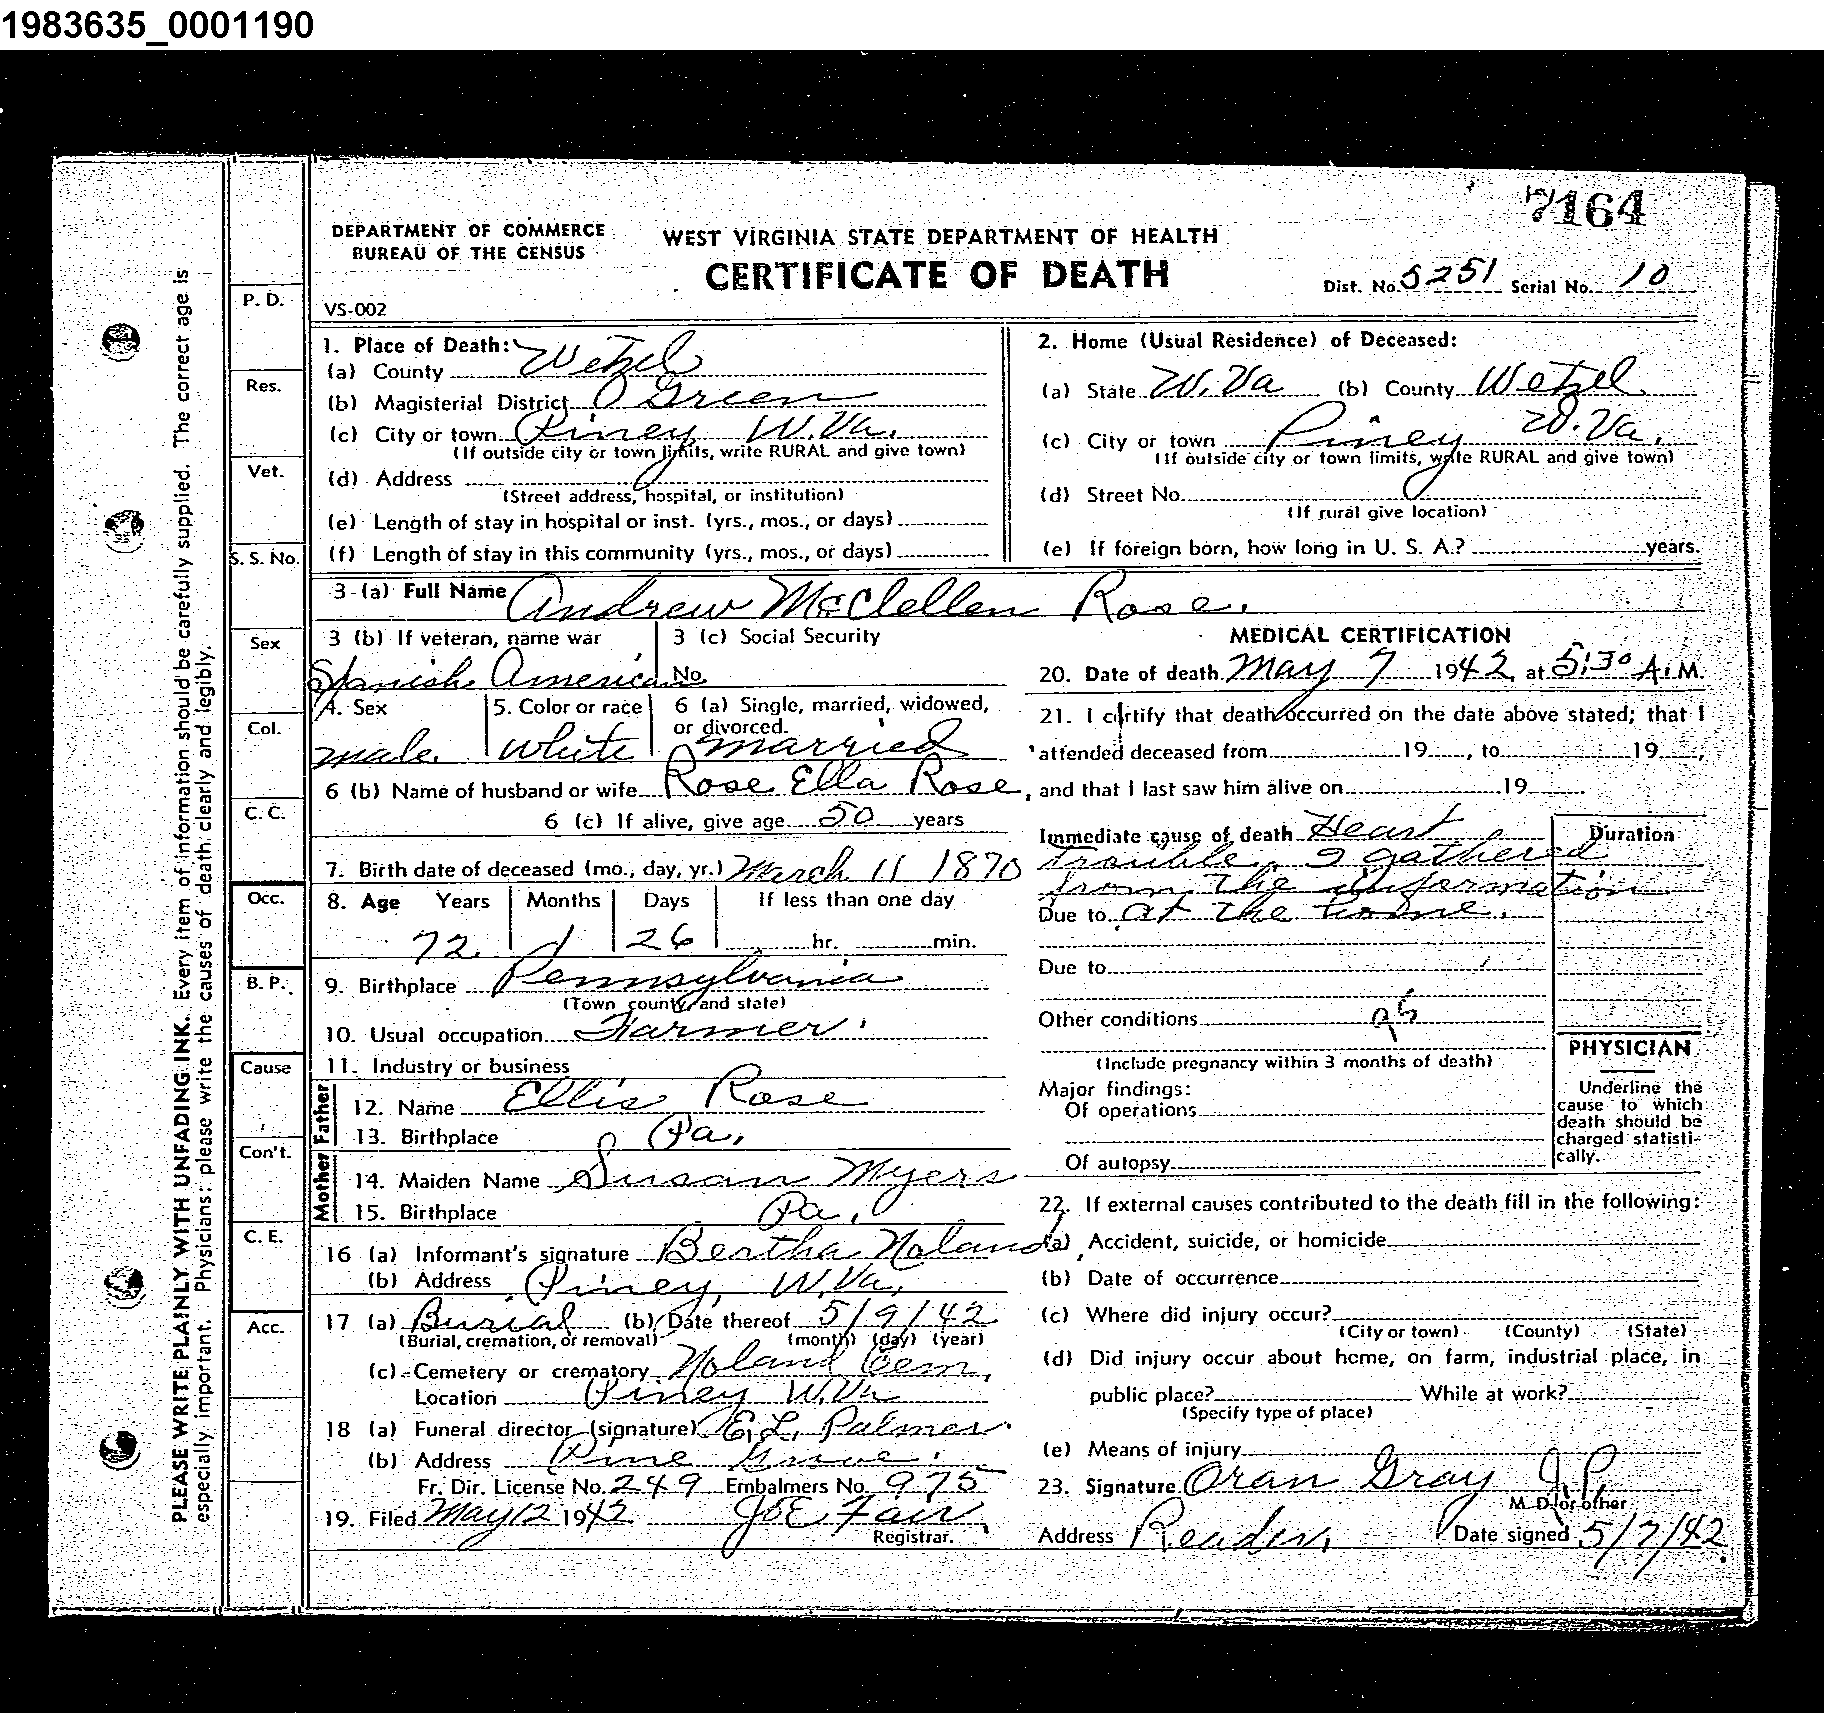 1983635_0001190
7164
DEPARTMENT OF COMMERCE
BUREAU OF THE CENSUS
WEST VIRGINIA STATE DEPARTMENT OF HEALTH
CERTIFICATE OF DEATH
Dist. No. 5251 Serial No. 10
VS-002
PLEASE WRITE PLAINLY WITH UNFADING INK. Every item of information should be carefully supplied. The correct age is
especially important. Physicians: please write the causes of death clearly and legibly.
P. D.
Res.
Vet.
S. S. No.
Sex
Col.
C. C.
Occ.
B. P.
Cause
Con't.
C. E.
Acc.
1. Place of Death:
(a) County Wetzel
(b) Magisterial District Green
(c) City or town Piney W.Va.
(If outside city or town limits, write RURAL and give town)
(d) Address
(Street address, hospital, or institution)
(e) Length of stay in hospital or inst. (yrs., mos., or days)
(f) Length of stay in this community (yrs., mos., or days)
2. Home (Usual Residence) of Deceased:
(a) State W.Va (b) County Wetzel
(c) City or town Piney W.Va.
(If outside city or town limits, write RURAL and give town)
(d) Street No.
(If rural give location)
(e) If foreign born, how long in U. S. A.? years.
3 (a) Full Name Andrew McClellen Rose.
3 (b) If veteran, name war
Spanish American
3 (c) Social Security
No.
4. Sex
male.
5. Color or race
White
6 (a) Single, married, widowed,
or divorced.
married
6 (b) Name of husband or wife Rose Ella Rose
6 (c) If alive, give age 50 years
7. Birth date of deceased (mo., day, yr.) March 11 1870
8. Age Years Months Days If less than one day
72 1 26 hr. min.
9. Birthplace Pennsylvania
(Town county, and state)
10. Usual occupation Farmer
11. Industry or business
Father
12. Name Ellis Rose
13. Birthplace Pa.
Mother
14. Maiden Name Susan Myers
15. Birthplace Pa.
16 (a) Informant's signature Bertha Noland
(b) Address Piney, W.Va.
17 (a) Burial (b) Date thereof 5/9/42
(Burial, cremation, or removal) (month) (day) (year)
(c) Cemetery or crematory Noland Cem,
Location Piney W.Va
18 (a) Funeral director (signature) E. L. Palmer
(b) Address Pine Grove
Fr. Dir. License No. 249 Embalmers No. 975
19. Filed May 12 1942 Fair
Registrar.
MEDICAL CERTIFICATION
20. Date of death May 7 1942 at 5:30 A.M.
21. I certify that death occurred on the date above stated; that I
attended deceased from 19 , to 19 ,
and that I last saw him alive on 19
Immediate cause of death Heart
trouble, I gathered
from the information
Due to at the home.
Due to
Duration
Other conditions
(Include pregnancy within 3 months of death)
Major findings:
Of operations
Of autopsy
PHYSICIAN
Underline the
cause to which
death should be
charged statisti-
cally.
22. If external causes contributed to the death fill in the following:
(a) Accident, suicide, or homicide
(b) Date of occurrence
(c) Where did injury occur?
(City or town) (County) (State)
(d) Did injury occur about home, on farm, industrial place, in
public place? While at work?
(Specify type of place)
(e) Means of injury
23. Signature Oran Gray J P
M. D. or other
Address Reader, Date signed 5/7/42